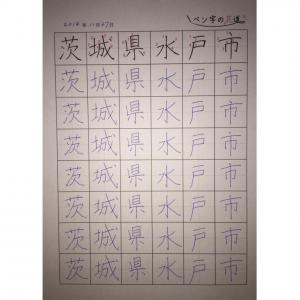 2016年11月27日
ペン字の花道
茨城県水戸市
茨城県水戸市
茨城県水戸市
茨城県水戸市
茨城県水戸市
茨城県水戸市
茨城県水戸市
茨城県水戸市